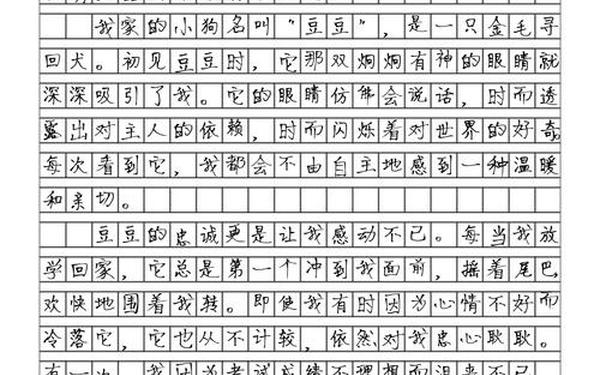 我家的小狗名叫“豆豆”，是一只金毛寻
回犬。初见豆豆时，它那双炯炯有神的眼睛就
深深吸引了我。它的眼睛仿佛会说话，时而透
露出对主人的依赖，时而闪烁着对世界的好奇。
每次看到它，我都会不由自主地感到一种温暖
和亲切。
豆豆的忠诚更是让我感动不已。每当我放
学回家，它总是第一个冲到我面前，摇着尾巴
欢快地围着我转。即使我有时因为心情不好而
冷落它，它也从不计较，依然对我忠心耿耿。
有一次，我因为考试成绩不理想而温来不已